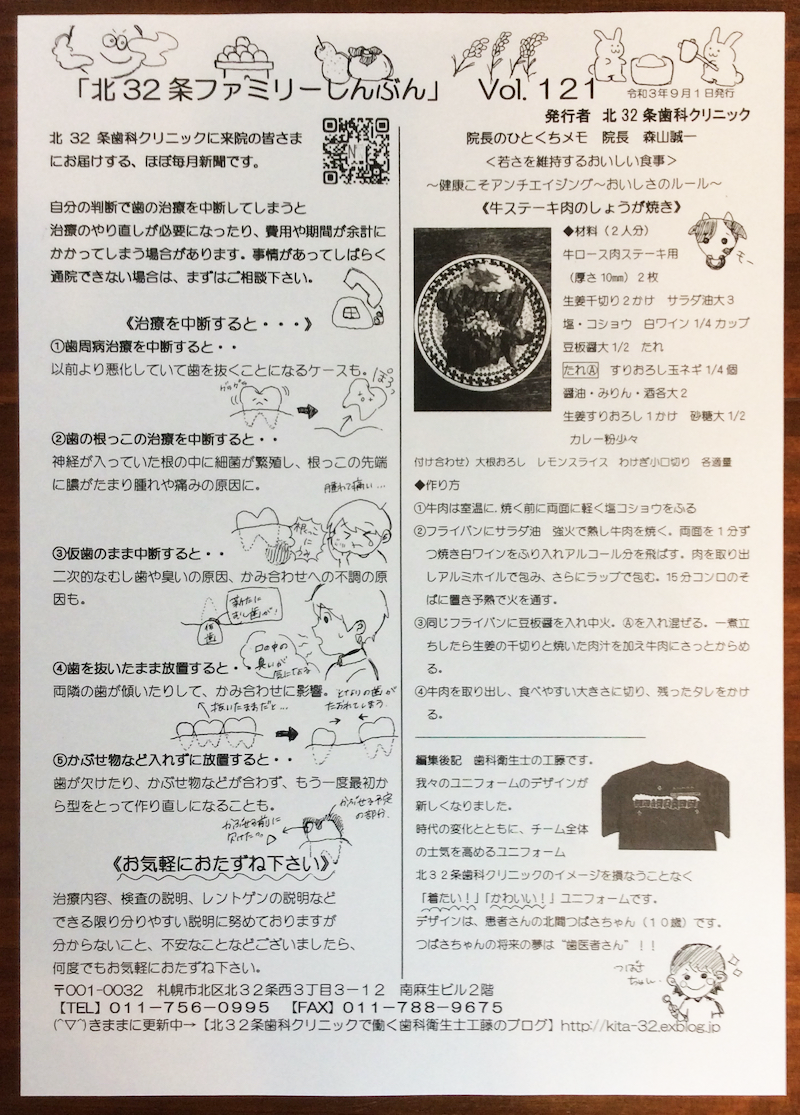 「北32条ファミリーしんぶん」 Vol.121 令和3年9月1日発行
発行者 北32条歯科クリニック
北32条歯科クリニックに来院の皆さま
にお届けする、ほぼ毎月新聞です。
自分の判断で歯の治療を中断してしまうと
治療のやり直しが必要になったり、費用や期間が余計に
かかってしまう場合があります。事情があってしばらく
通院できない場合は、まずはご相談下さい。
《治療を中断すると・・・》
①歯周病治療を中断すると・・
以前より悪化していて歯を抜くことになるケースも。
グラグラ
ぽろっ
②歯の根っこの治療を中断すると・・
神経が入っていた根の中に細菌が繁殖し、根っこの先端
に膿がたまり腫れや痛みの原因に。
腫れて痛い…
根っこに
③仮歯のまま中断すると・・
二次的なむし歯や臭いの原因、かみ合わせへの不調の原
因も。
新たに
むし歯が!
仮歯
口の中の
臭いが
気になる
④歯を抜いたまま放置すると・
両隣の歯が傾いたりして、かみ合わせに影響。
抜いたままだと…
となりの歯が
たおれてしまう
⑤かぶせ物など入れずに放置すると・・
歯が欠けたり、かぶせ物などが合わず、もう一度最初か
ら型をとって作り直しになることも。
かぶせる予定
の部分
かぶせる前に
欠けた
《お気軽におたずね下さい》
治療内容、検査の説明、レントゲンの説明など
できる限り分りやすい説明に努めておりますが
分からないこと、不安なことなどございましたら、
何度でもお気軽におたずね下さい。
院長のひとくちメモ 院長 森山誠一
<若さを維持するおいしい食事>
~健康こそアンチエイジング~おいしさのルール~
《牛ステーキ肉のしょうが焼き》
◆材料(2人分)
牛ロース肉ステーキ用
(厚さ10mm)2枚
生姜千切り2かけ サラダ油大3
塩・コショウ 白ワイン1/4カップ
豆板醤大1/2 たれ
たれⒶ すりおろし玉ネギ1/4個
醤油・みりん・酒各大2
生姜すりおろし1かけ 砂糖大1/2
カレー粉少々
付け合わせ)大根おろし レモンスライス わけぎ小口切り 各適量
◆作り方
①牛肉は室温に.焼く前に両面に軽く塩コショウをふる
②フライパンにサラダ油 強火で熱し牛肉を焼く。両面を1分ず
つ焼き白ワインをふり入れアルコール分を飛ばす。肉を取り出
しアルミホイルで包み、さらにラップで包む。15分コンロのそ
ばに置き予熱で火を通す。
③同じフライパンに豆板醤を入れ中火。Ⓐを入れ混ぜる。一煮立
ちしたら生姜の千切りと焼いた肉汁を加え牛肉にさっとからめ
る。
④牛肉を取り出し、食べやすい大きさに切り、残ったタレをかけ
る。
編集後記 歯科衛生士の工藤です。
我々のユニフォームのデザインが
新しくなりました。
時代の変化とともに、チーム全体
の士気を高めるユニフォーム
北32条歯科クリニックのイメージを損なうことなく
「着たい!」「かわいい!」ユニフォームです。
デザインは、患者さんの北間つばさちゃん(10歳)です。
つばさちゃんの将来の夢は“歯医者さん”!!
つばさ
ちゃん
〒001-0032 札幌市北区北32条西3丁目3-12 南麻生ビル2階
【TEL】011-756-0995 【FAX】011-788-9675
(^▽^)きままに更新中→【北32条歯科クリニックで働く歯科衛生士工藤のブログ】http://kita-32.exblog.jp